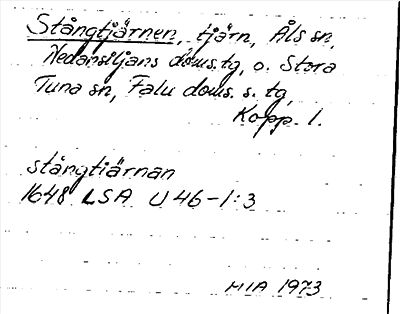 Stångtjärnen, tjärn, Åls sn,
Nedansiljans doms.tg, o. Stora
Tuna sn, Falu doms. s. tg,
Kopp. l.
stångtiärnan
1648 LSA U 46-1:3
MIA 1973